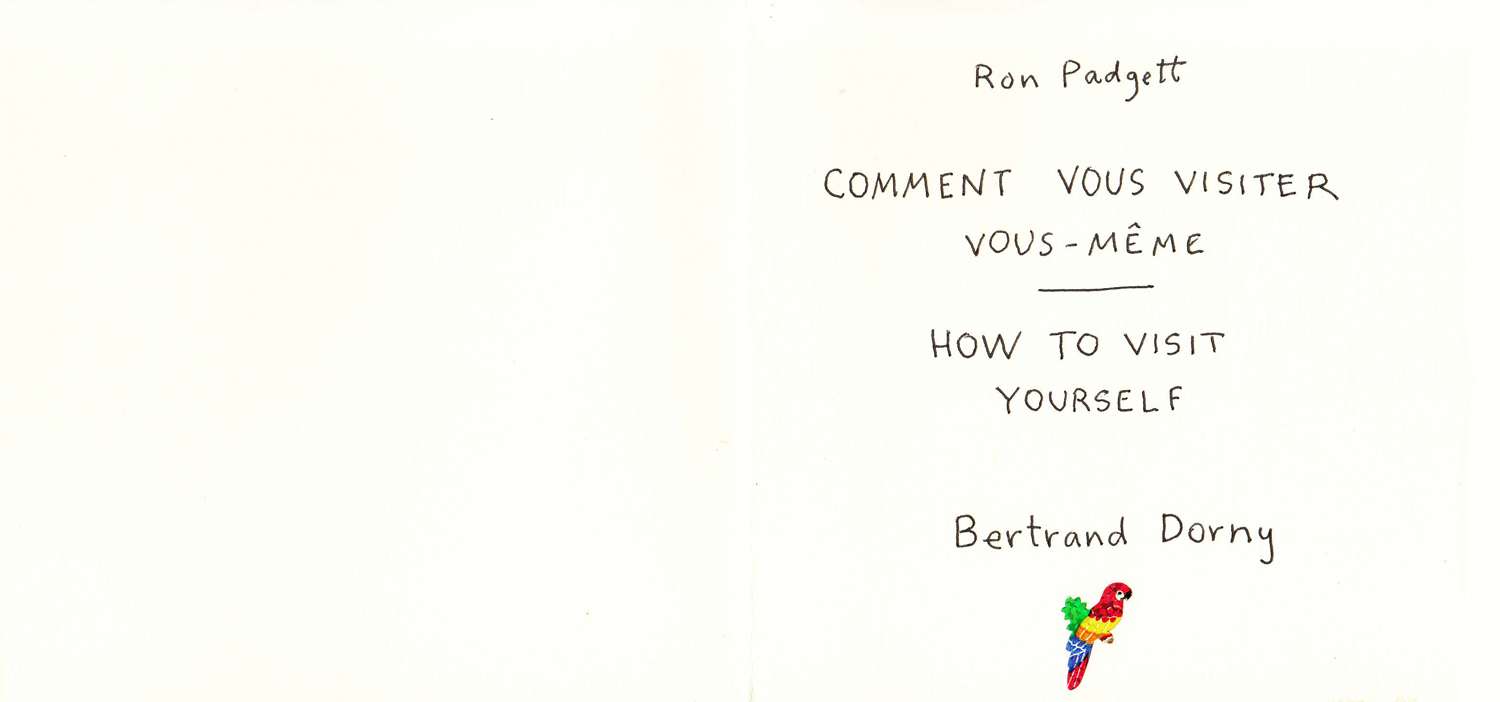 Ron Padgett
COMMENT VOUS VISITER
VOUS-MÊME
HOW TO VISIT
YOURSELF
Bertrand Dorny